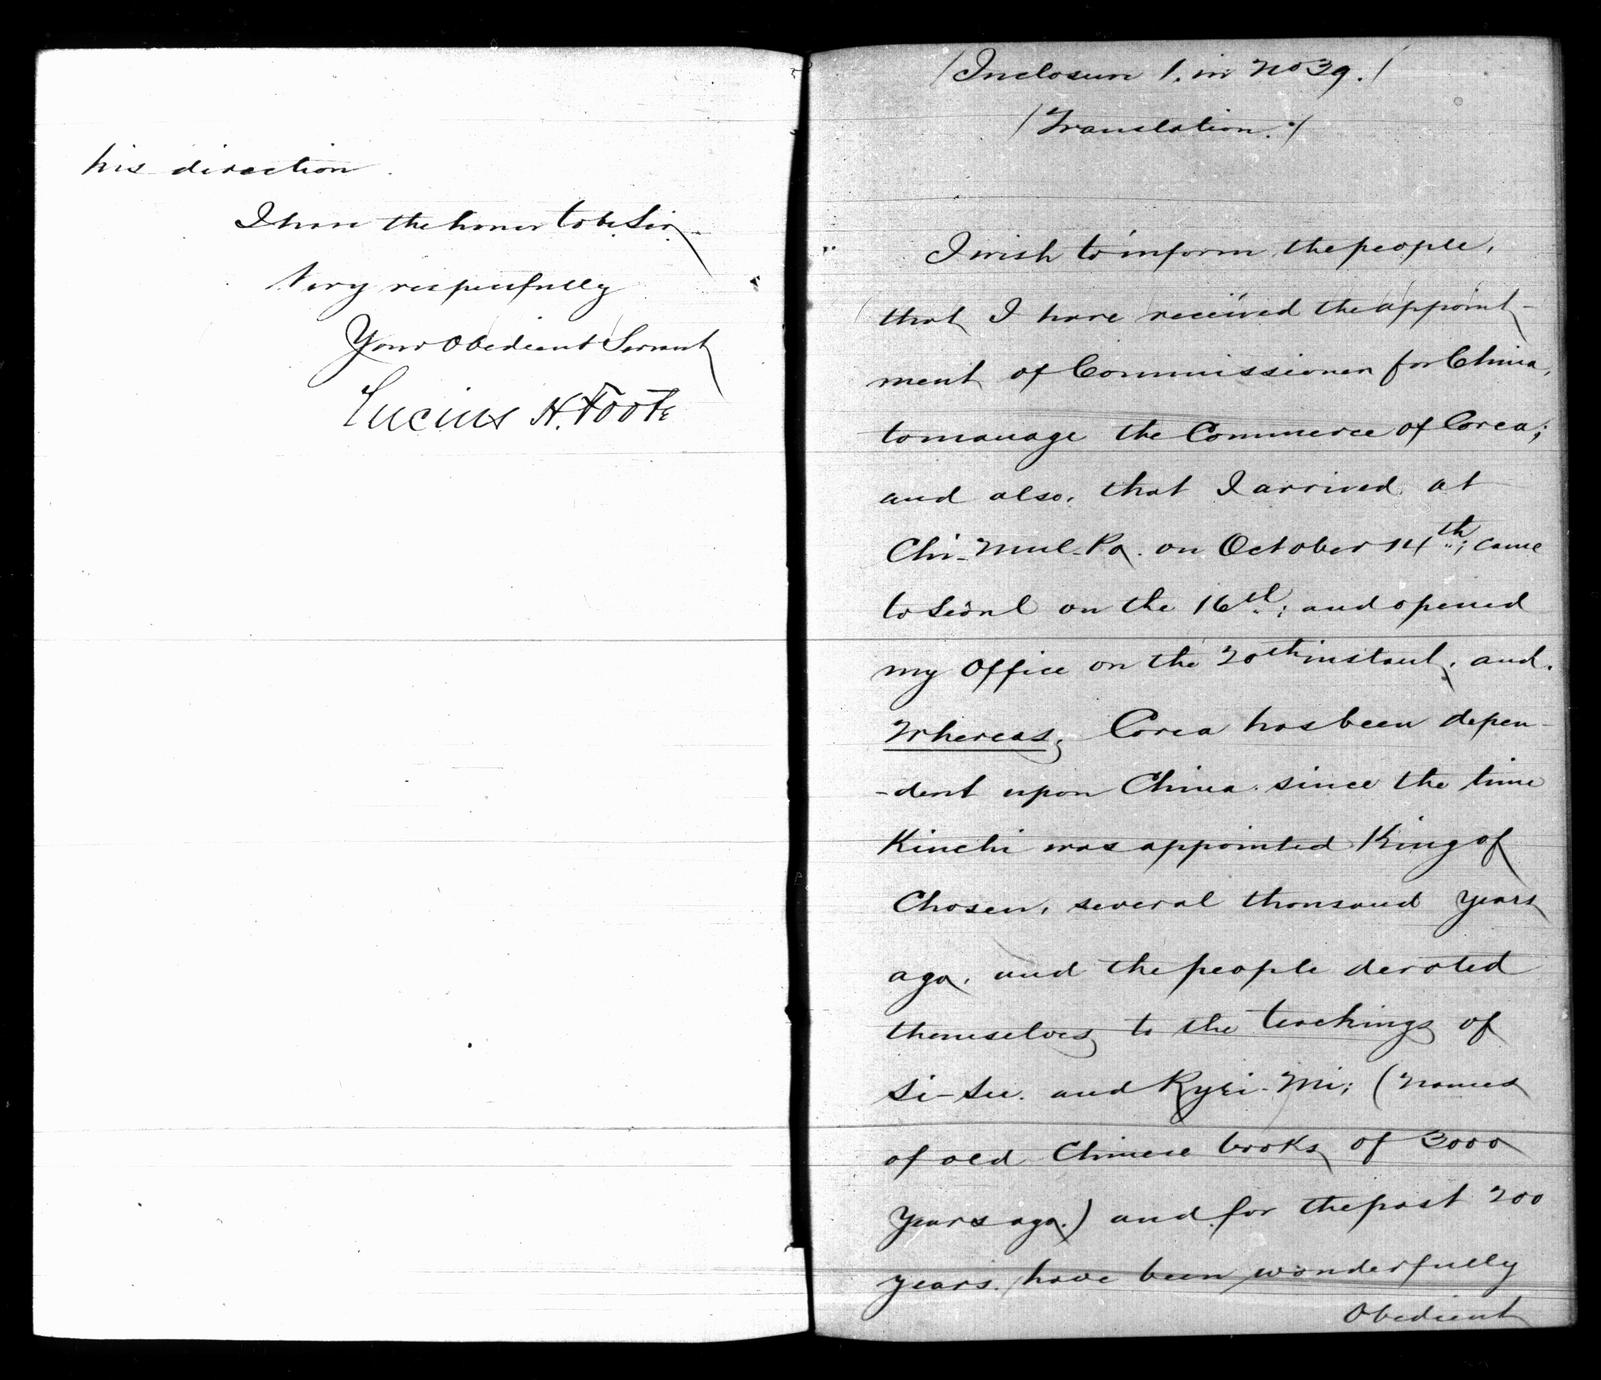 his direction.
I have the honor to be Sir
Very respectfully
Your Obedient Servant
Lucius H. Foote
(Inclosure 1. in No 39.)
(Translation.)
I wish to inform the people,
that I have received the appoint-
ment of Commissioner for China,
to manage the Commerce of Corea;
and also, that I arrived at
Chi-Mul-Po. on October 14th; came
to Seoul on the 16th; and opened
my Office on the 20th instant, and.
Whereas, Corea has been depen-
-dent upon China since the time
Kinchi was appointed King of
Chosen, several thousand years
ago, and the people devoted
themselves to the teachings of
Si-Su. and Kyei-Mi; (names
of old Chinese books of 3000
years ago.) and for the past 200
years. have been wonderfully
Obedient